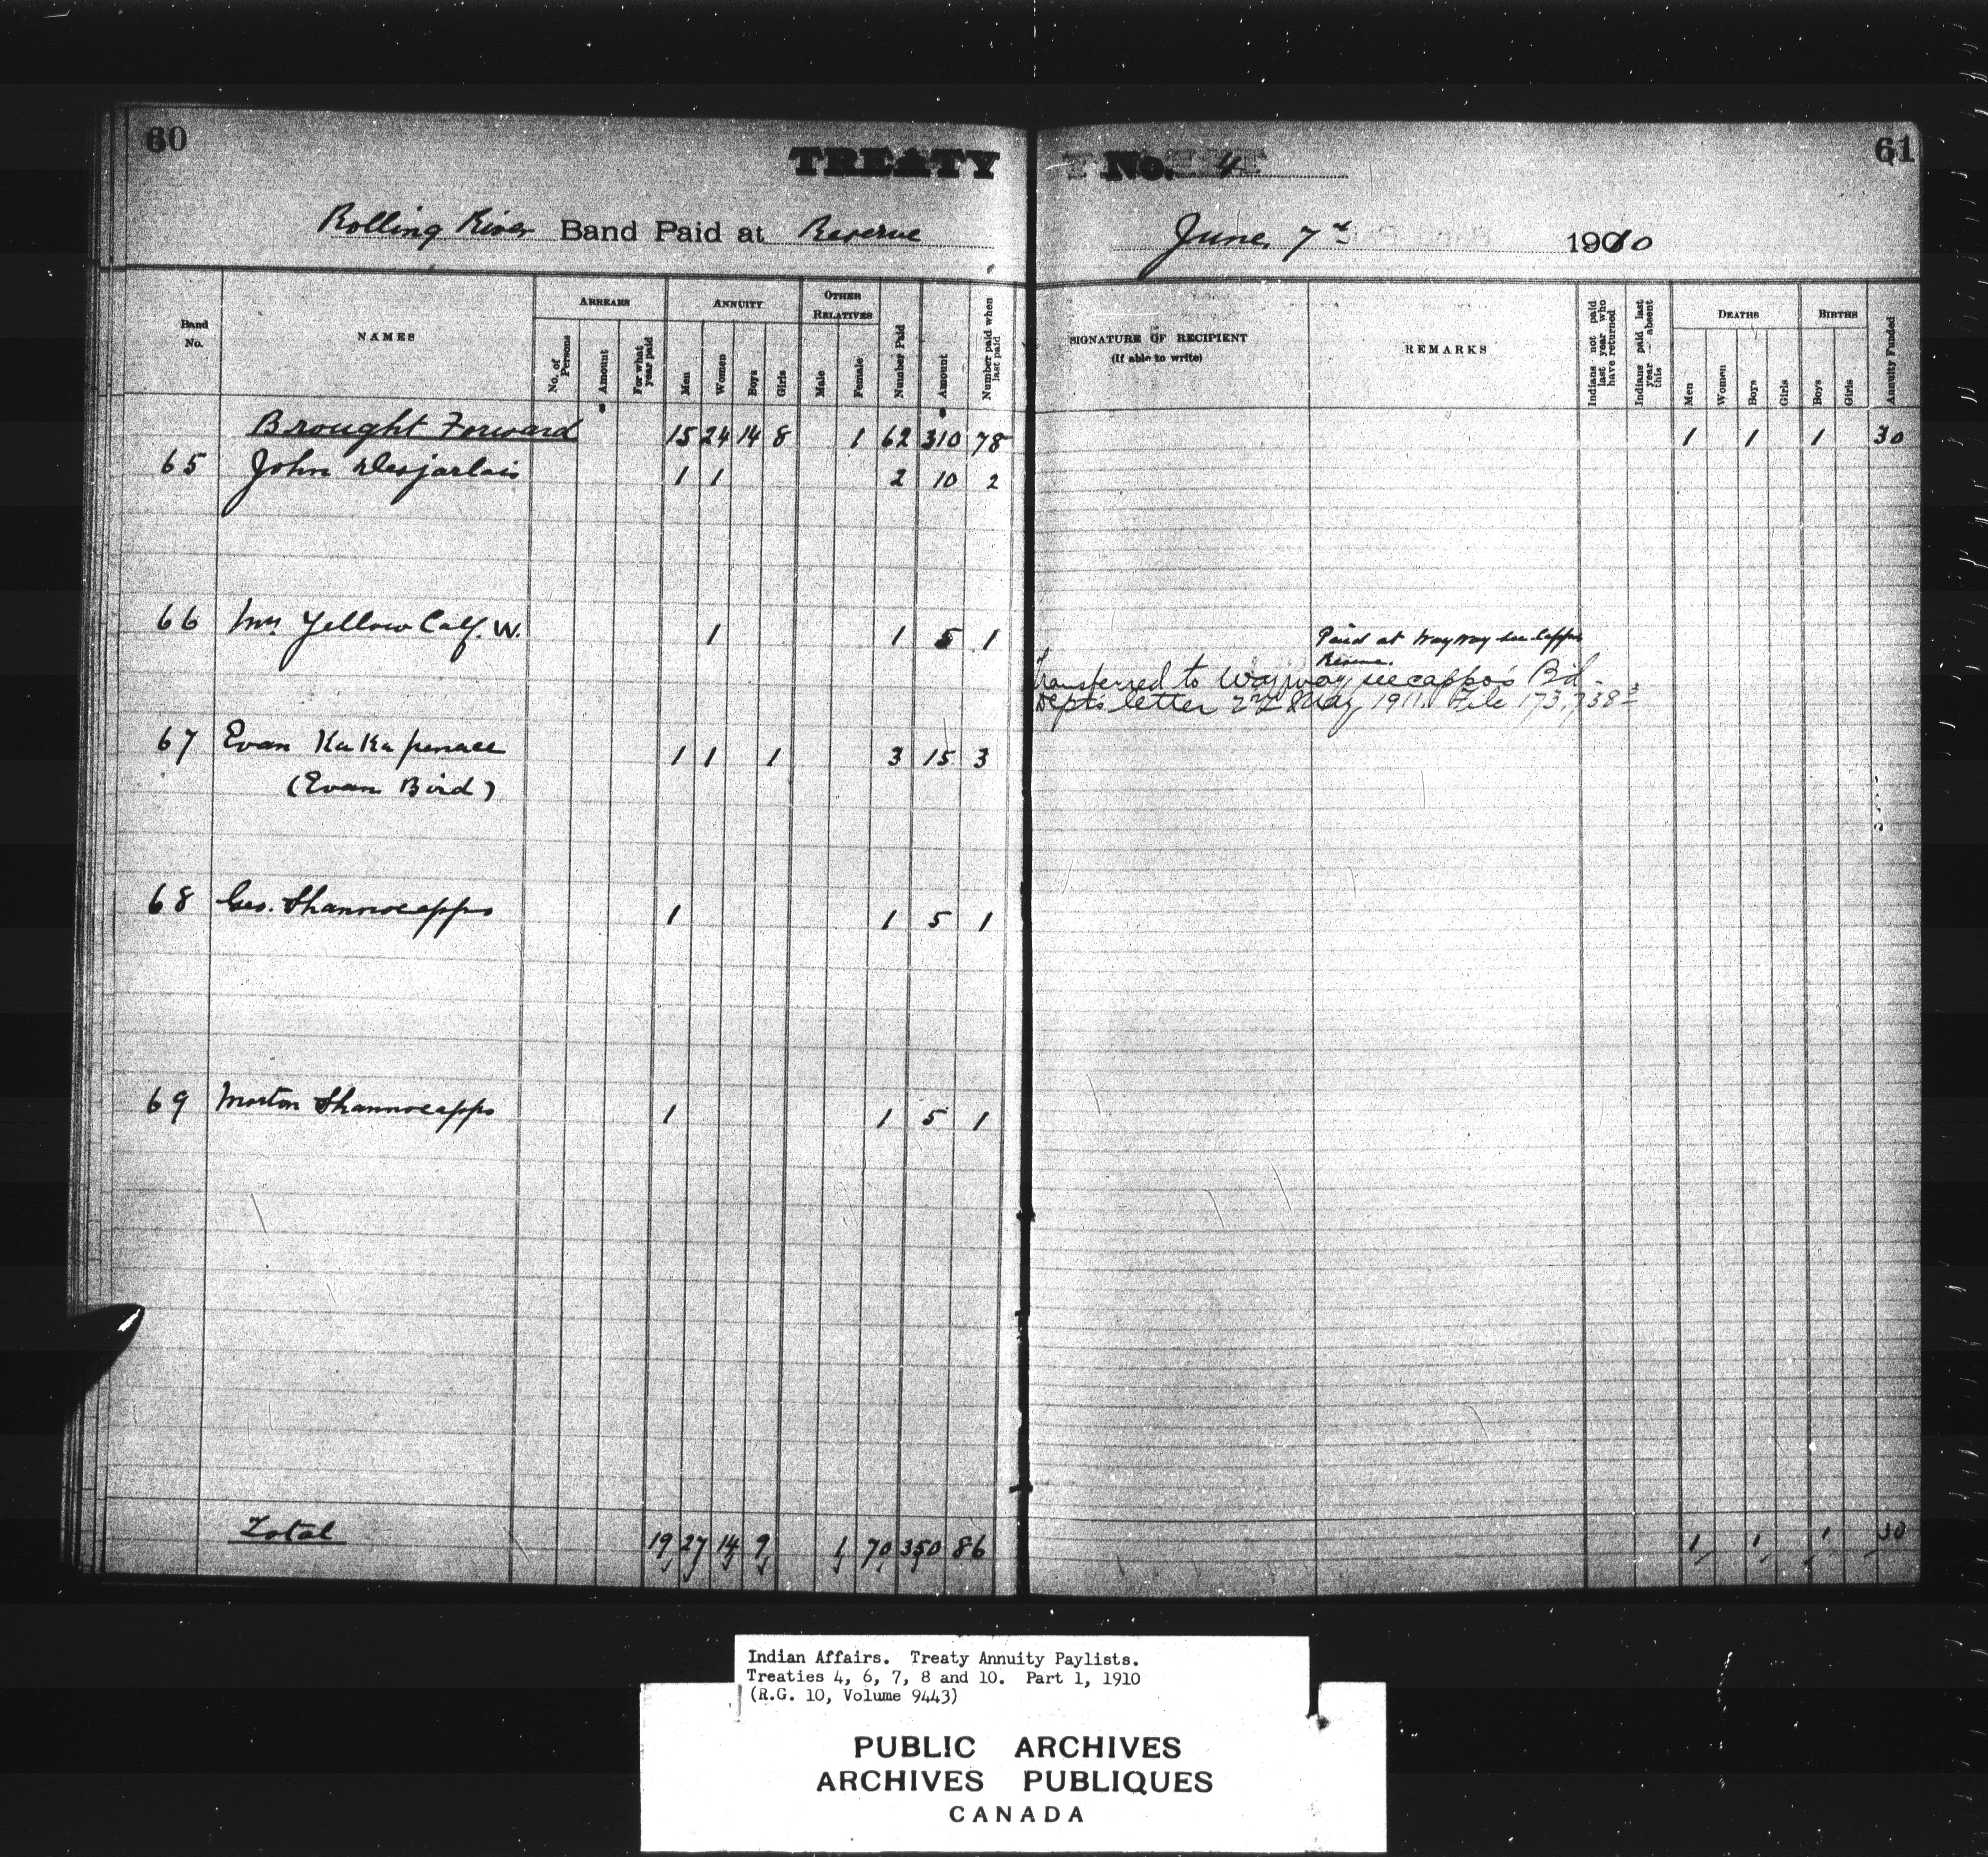 60
TREATY No. 4
61
Rolling River Band Paid at Reserve
June 7th 1910
Band No.
NAMES
ARREARS
No. of Persons
Amount
For what year paid
ANNUITY
Men
Women
Boys
Girls
OTHER RELATIVES
Male
Female
Number Paid
Amount
Number paid when last paid
SIGNATURE OF RECIPIENT
(If able to write)
REMARKS
Indians not paid last year who have returned
Indians paid last year — absent this
DEATHS
Men
Women
Boys
Girls
BIRTHS
Boys
Girls
Annuity Funded
Brought Forward 15 24 14 8 1 62 310 78 1 1 1 30
65 John Desjarlais 1 1 2 10 2
66 Mrs Yellow Calf. W. 1 1 5 1
Paid at Wayway see Cappo
Reserve.
Transferred to Wayway seecappo's Bd.
Dept's letter 22d May 1911. File 173,738-3
67 Evan Ka Ka penace 1 1 1 3 15 3
(Evan Bird)
68 Geo. Shannocappo 1 1 5 1
69 Morton Shannocappo 1 1 5 1
Total 19 27 14 9 1 70 350 86 1 1 1 30
Indian Affairs. Treaty Annuity Paylists.
Treaties 4, 6, 7, 8 and 10. Part 1, 1910
(R.G. 10, Volume 9443)
PUBLIC ARCHIVES
ARCHIVES PUBLIQUES
CANADA